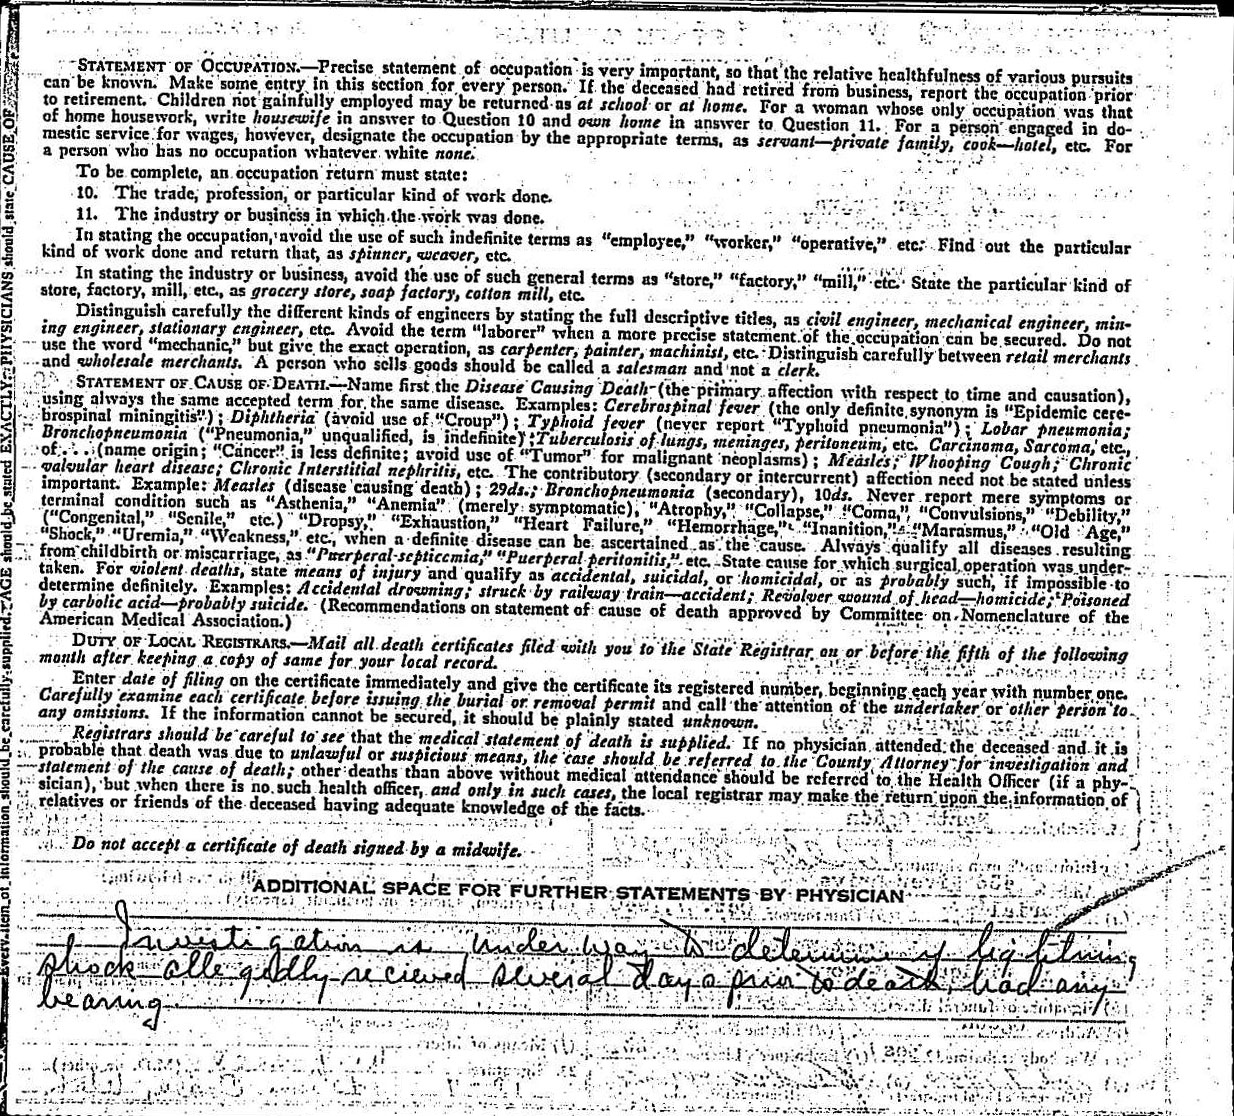 STATEMENT OF OCCUPATION.—Precise statement of occupation is very important, so that the relative healthfulness of various pursuits
can be known. Make some entry in this section for every person. If the deceased had retired from business, report the occupation prior
to retirement. Children not gainfully employed may be returned as at school or at home. For a woman whose only occupation was that
of home housework, write housewife in answer to Question 10 and own home in answer to Question 11. For a person engaged in do-
mestic service for wages, however, designate the occupation by the appropriate terms, as servant—private family, cook—hotel, etc. For
a person who has no occupation whatever white none.
To be complete, an occupation return must state:
10. The trade, profession, or particular kind of work done.
11. The industry or business in which the work was done.
In stating the occupation, avoid the use of such indefinite terms as "employee," "worker," "operative," etc. Find out the particular
kind of work done and return that, as spinner, weaver, etc.
In stating the industry or business, avoid the use of such general terms as "store," "factory," "mill," etc. State the particular kind of
store, factory, mill, etc., as grocery store, soap factory, cotton mill, etc.
Distinguish carefully the different kinds of engineers by stating the full descriptive titles, as civil engineer, mechanical engineer, min-
ing engineer, stationary engineer, etc. Avoid the term "laborer" when a more precise statement of the occupation can be secured. Do not
use the word "mechanic," but give the exact operation, as carpenter, painter, machinist, etc. Distinguish carefully between retail merchants
and wholesale merchants. A person who sells goods should be called a salesman and not a clerk.
STATEMENT OF CAUSE OF DEATH.—Name first the Disease Causing Death (the primary affection with respect to time and causation),
using always the same accepted term for the same disease. Examples: Cerebrospinal fever (the only definite synonym is "Epidemic cere-
brospinal miningitis"); Diphtheria (avoid use of "Croup"); Typhoid fever (never report "Typhoid pneumonia"); Lobar pneumonia;
Bronchopneumonia ("Pneumonia," unqualified, is indefinite); Tuberculosis of lungs, meninges, peritoneum, etc. Carcinoma, Sarcoma, etc.,
of . . . (name origin; "Cancer" is less definite; avoid use of "Tumor" for malignant neoplasms); Measles; Whooping Cough; Chronic
valvular heart disease; Chronic Interstitial nephritis, etc. The contributory (secondary or intercurrent) affection need not be stated unless
important. Example: Measles (disease causing death); 29ds.; Bronchopneumonia (secondary), 10ds. Never report mere symptoms or
terminal condition such as "Asthenia," "Anemia" (merely symptomatic), "Atrophy," "Collapse," "Coma," "Convulsions," "Debility,"
("Congenital," "Senile," etc.) "Dropsy," "Exhaustion," "Heart Failure," "Hemorrhage," "Inanition," "Marasmus," "Old Age,"
"Shock," "Uremia," "Weakness," etc., when a definite disease can be ascertained as the cause. Always qualify all diseases resulting
from childbirth or miscarriage, as "Puerperal septicemia," "Puerperal peritonitis," etc. State cause for which surgical operation was under-
taken. For violent deaths, state means of injury and qualify as accidental, suicidal, or homicidal, or as probably such, if impossible to
determine definitely. Examples: Accidental drowning; struck by railway train—accident; Revolver wound of head—homicide; Poisoned
by carbolic acid—probably suicide. (Recommendations on statement of cause of death approved by Committee on Nomenclature of the
American Medical Association.)
DUTY OF LOCAL REGISTRARS.—Mail all death certificates filed with you to the State Registrar on or before the fifth of the following
month after keeping a copy of same for your local record.
Enter date of filing on the certificate immediately and give the certificate its registered number, beginning each year with number one.
Carefully examine each certificate before issuing the burial or removal permit and call the attention of the undertaker or other person to
any omissions. If the information cannot be secured, it should be plainly stated unknown.
Registrars should be careful to see that the medical statement of death is supplied. If no physician attended the deceased and it is
probable that death was due to unlawful or suspicious means, the case should be referred to the County Attorney for investigation and
statement of the cause of death; other deaths than above without medical attendance should be referred to the Health Officer (if a phy-
sician), but when there is no such health officer, and only in such cases, the local registrar may make the return upon the information of
relatives or friends of the deceased having adequate knowledge of the facts.
Do not accept a certificate of death signed by a midwife.
ADDITIONAL SPACE FOR FURTHER STATEMENTS BY PHYSICIAN
Investigation is under way to determine if lightning
shock allegedly recieved several days prior to death, had any
bearing.
Every item of information should be carefully supplied. AGE should be stated EXACTLY. PHYSICIANS should state CAUSE OF